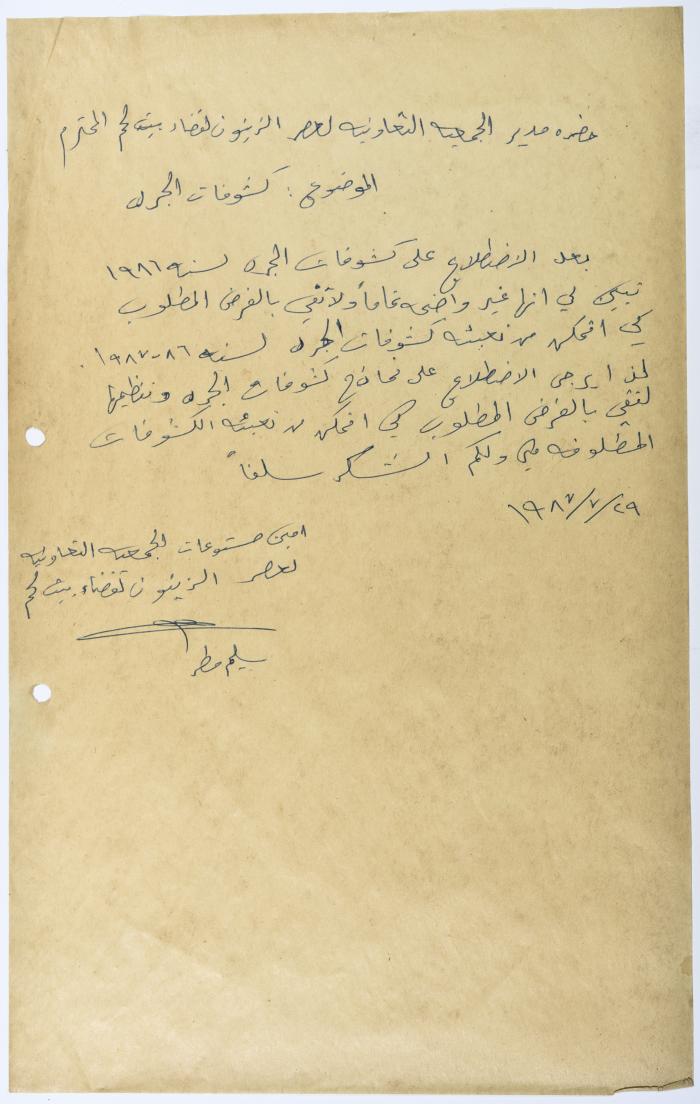 حضره مدير الجمعيه التعاونيه لعصر الزيتون لقضاء بيت لحم المحترم
الموضوع : كشوفات الجرد
بعد الاضطلاع على كشوفات الجرد لسنه ١٩٨٦
تبين لي انها غير واضحه تماماً ولا تفي بالغرض المطلوب
كي اتمكن من تعبئه كشوفات الجرد لسنه ٨٦-١٩٨٧.
لذا يرجى الاضطلاع على نماذج كشوفات الجرد وتنظيمها
لتفي بالغرض المطلوب كي اتمكن من تعبئه الكشوفات
المطلوبه مني ولكم الشكر سلفاً
٢٩/٧/١٩٨٧
امين مستودعات الجمعيه التعاونيه
لعصر الزيتون لقضاء بيت لحم
سليم مطر